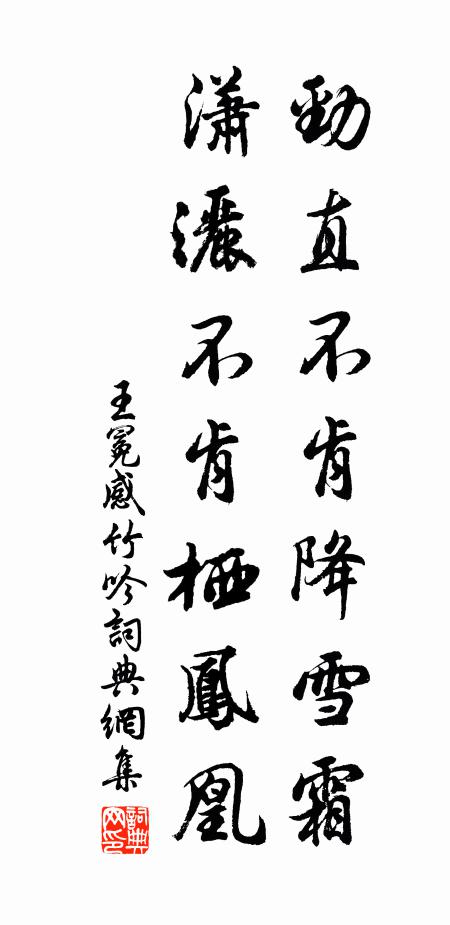 勁直不肯降雪霜
瀟灑不肯栖鳳凰
王冕感竹吟詞典網集
詞典网印